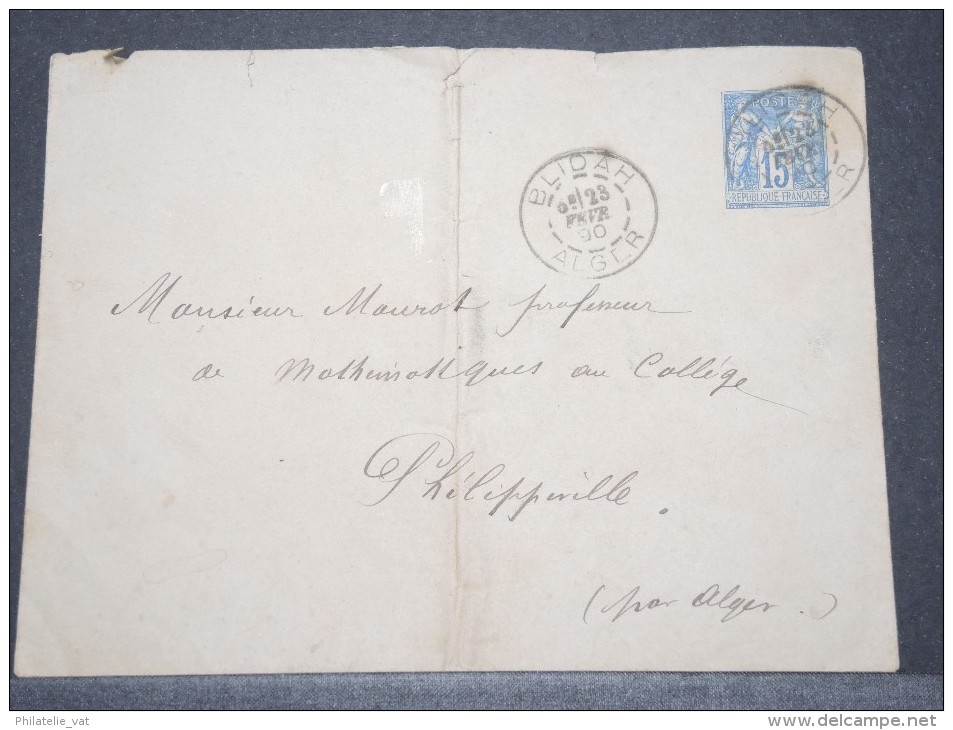 POSTE
15
REPUBLIQUE FRANÇAISE
BLIDAH
23
FEVR
90
ALGER
Monsieur Maurot professeur
de Mathématiques au Collège
Philippeville.
(par Alger.)
Philatelie_vat
www.delcampe.net